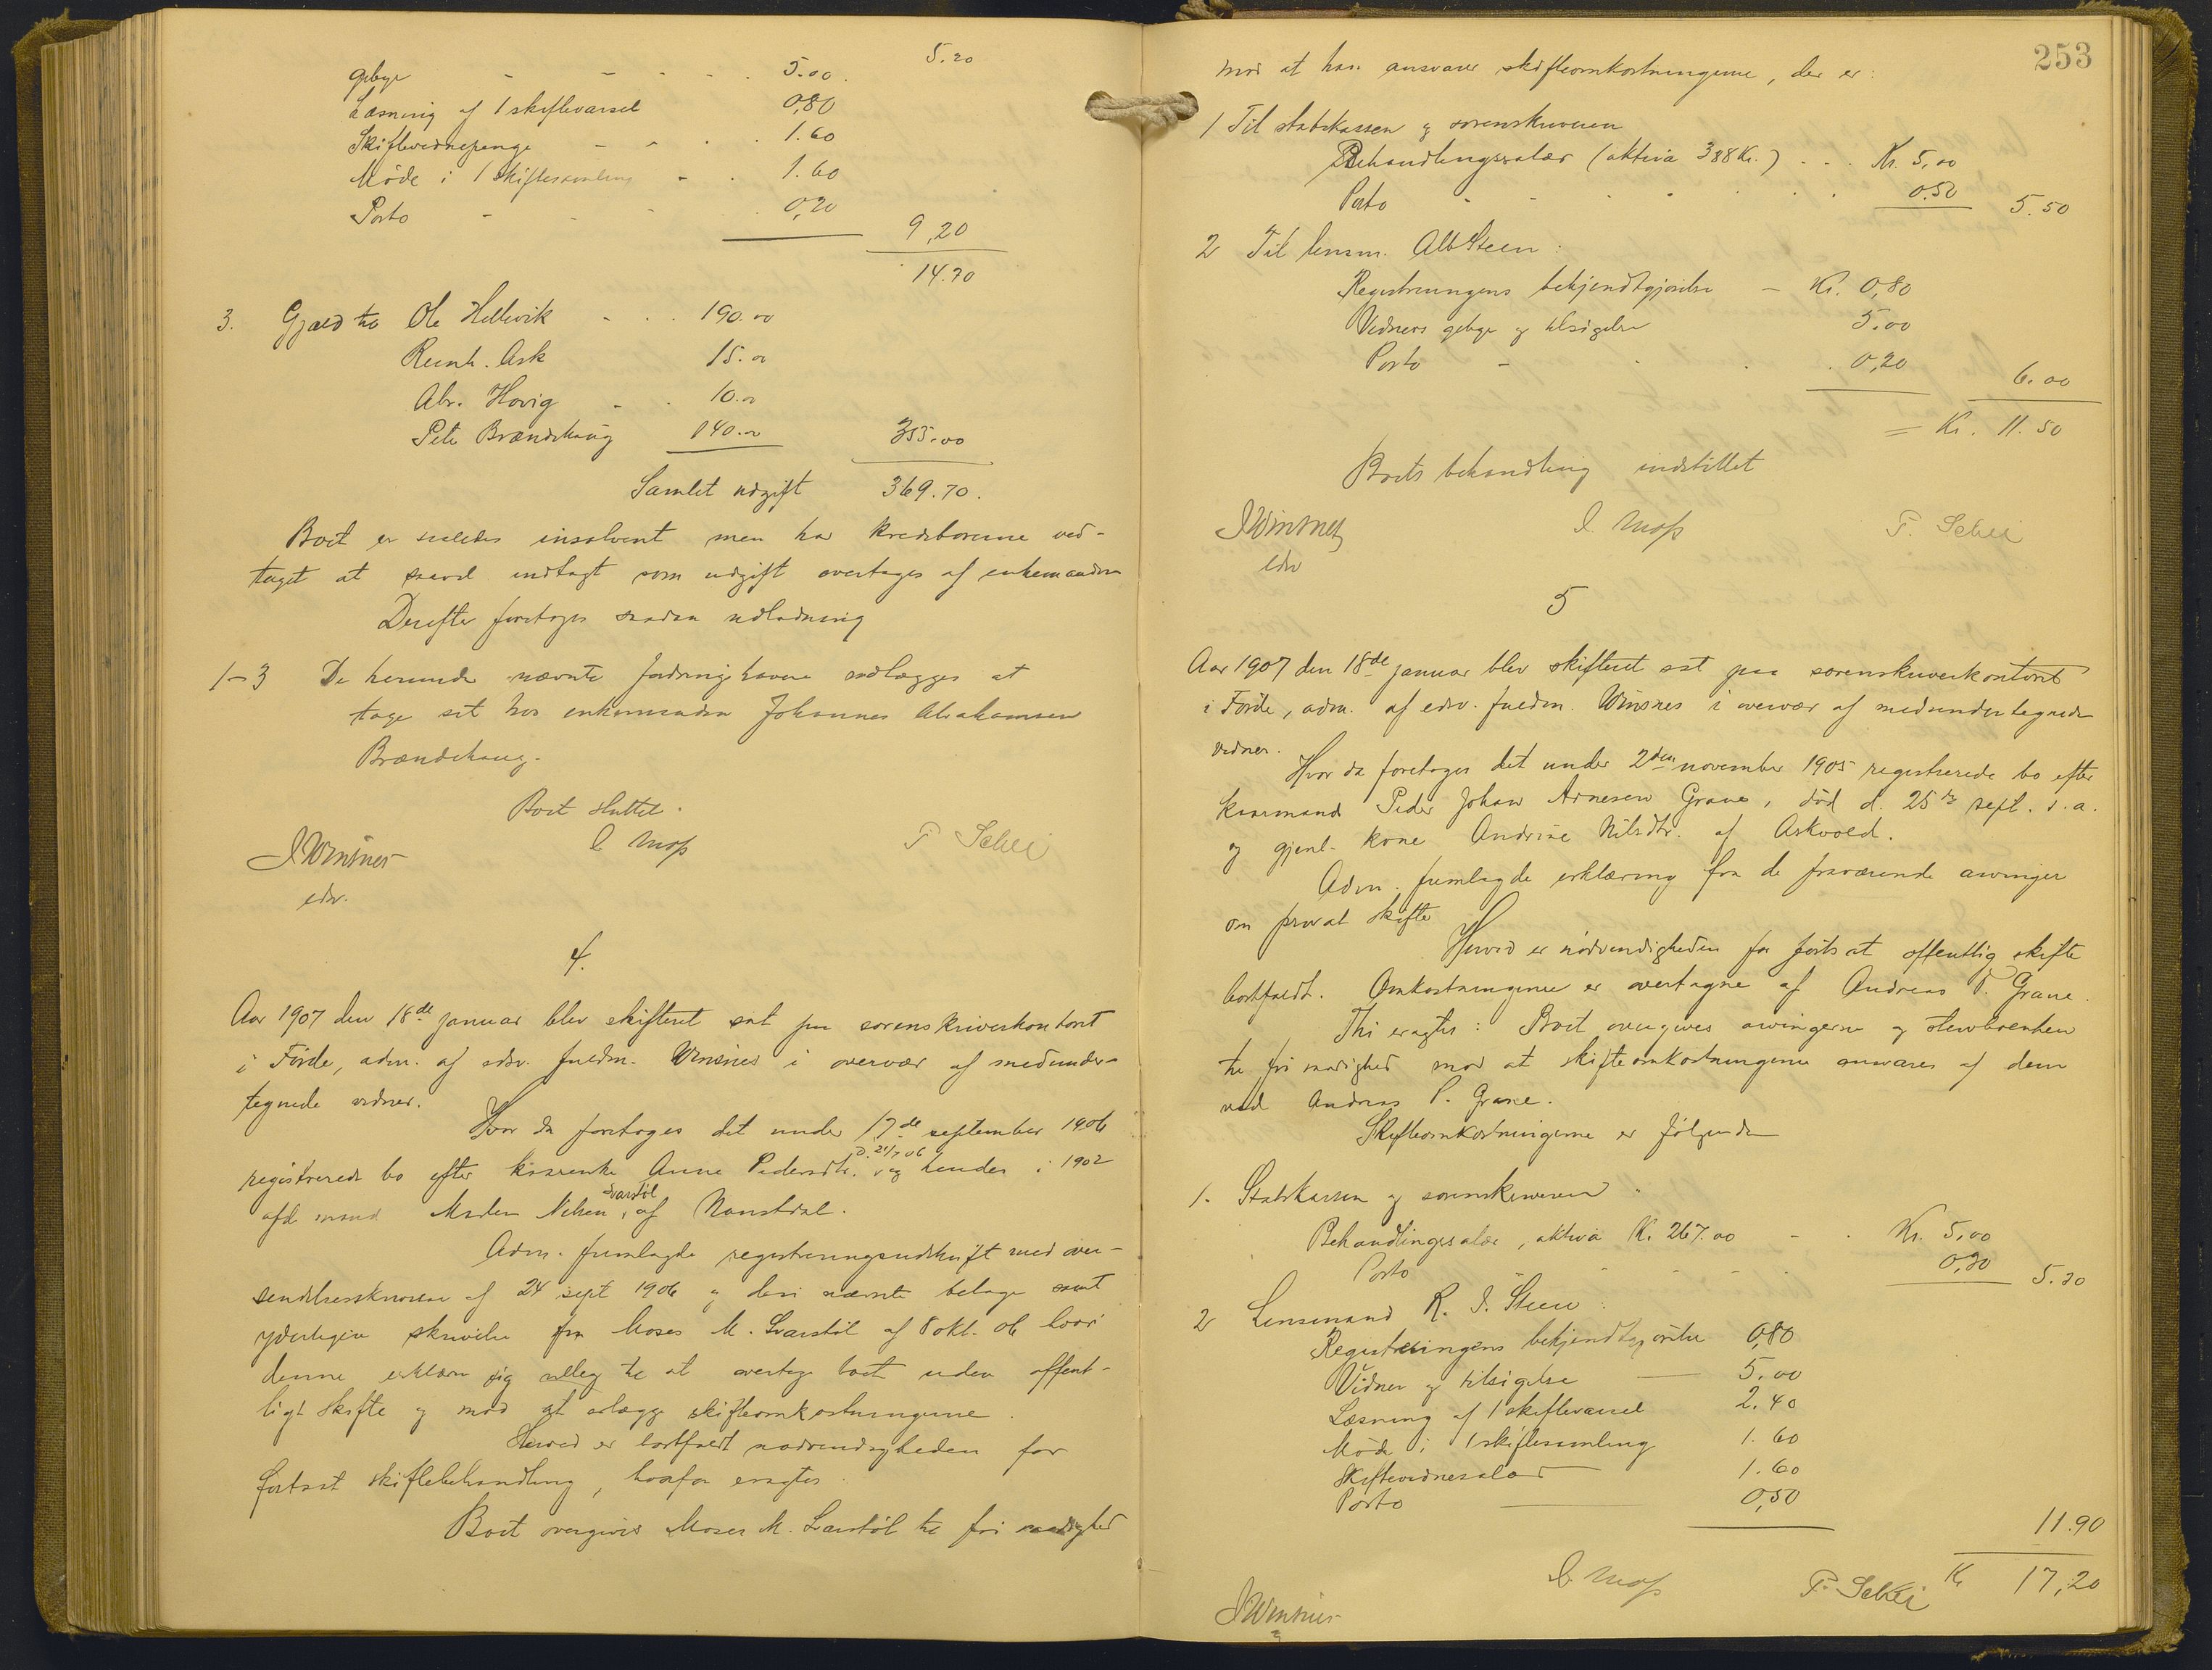 5.20
gebyr - - - - 5.00.
Læsning af 1 skiftevarsel 0,80
Skiftevidnepenge - - . . 1.60
Møde i 1 skiftesamling - . 1.60
Porto - - - . 0,20
9,20
14.70
3. Gjæld til Ole Hellevik - . . 190.00
Reinh. Ask 15.00
Abr. Hovig - . 10.00
Peter Brændehaug 140.00 355.00
Samlet udgift 369.70.
Boet er saaledes insolvent men har kreditorerne ved-
taget at saavel indtægt som udgift overtages af enkemanden
Derefter foretages saadan udlodning
1-3 De herunder nævnte fordringshavere udlægges at
tage sit hos enkemanden Johannes Abrahamsen
Brændehaug.
Boet sluttet.
J Winsnes C Moss P Schei
edsv.
4.
Aar 1907 den 18de januar blev skifteret sat paa sorenskriverkontoret
i Førde, adm. af edsv. fuldm. Winsnes i overvær af medunder-
tegnede vidner.
Hvor da foretages det under 17de september 1906
registrerede bo efter kaarenke Anne Pedersdtr. D. 24/7 06 og hendes i 1902
afd. mand Mads Nilsen Svarstøl, af Naustdal.
Adm. fremlagde registreringsudskrift med over-
sendelsesskrivelse af 24 sept 1906 og deri nævnte bilage samt
yderligere skrivelse fra Moses M. Svarstøl af 8 okt. 06 hvori
denne erklærer sig villig til at overtage boet uden offent-
ligt skifte og mod at erlægge skifteomkostningerne.
Herved er bortfaldt nødvendigheden for
fortsat skiftebehandling, hvorfor eragtes:
Boet overgives Moses M. Svarstøl til fri raadighed
253
mod at han ansvarer skifteomkostningerne, der er:
1 Til statskassen og sorenskriveren
Behandlingssalær (aktiva 388 Kr.) . . . Kr. 5,00
Porto - - - - - . 0.50 5.50
2 Til lensm. Alb Steen:
Registreringens bekjendtgjørelse - Kr. 0,80
Vidners gebyr og tilsigelse 5.00
Porto - - . . 0,20 6.00
= Kr. 11.50
Boets behandling indstillet
J Winsnes C. Moss P. Schei
edsv
5
Aar 1907 den 18de januar blev skifteret sat paa sorenskriverkontoret
i Førde, adm. af edsv. fuldm. Winsnes i overvær af medundertegnede
vidner.
Hvor da foretages det under 2den november 1905 registrerede bo efter
kaarmand Peder Johan Arnesen Grane, død d. 25de sept. s.a.
og gjenl. kone Andrine Nilsdtr. af Askvold.
Adm. fremlagde erklæring fra de fraværende arvinger
om privat skifte
Herved er nødvendigheden for fortsat offentlig skifte
bortfaldt. Omkostningerne er overtagne af Andreas P. Grane.
Thi eragtes: Boet overgives arvingerne og stervboenken
til fri raadighed mod at skifteomkostningerne ansvares af dem
ved Andreas P. Grane.
Skifteomkostningerne er følgende
1. Statskassen og sorenskriveren:
Behandlingssalær, aktiva Kr. 267.00 - . Kr. 5,00
Porto - - - - . 0,30 5.30
2 Lensmand R. I. Steen:
Registreringens bekjendtgjørelse 0,80
Vidner og tilsigelse 5.00
Læsning af 1 skiftevarsel 2.40
Møde i 1 skiftesamling 1.60
Skiftevidnesalær 1.60
Porto 0,50
11.90
Kr 17,20
J Winsnes C. Moss P. Schei